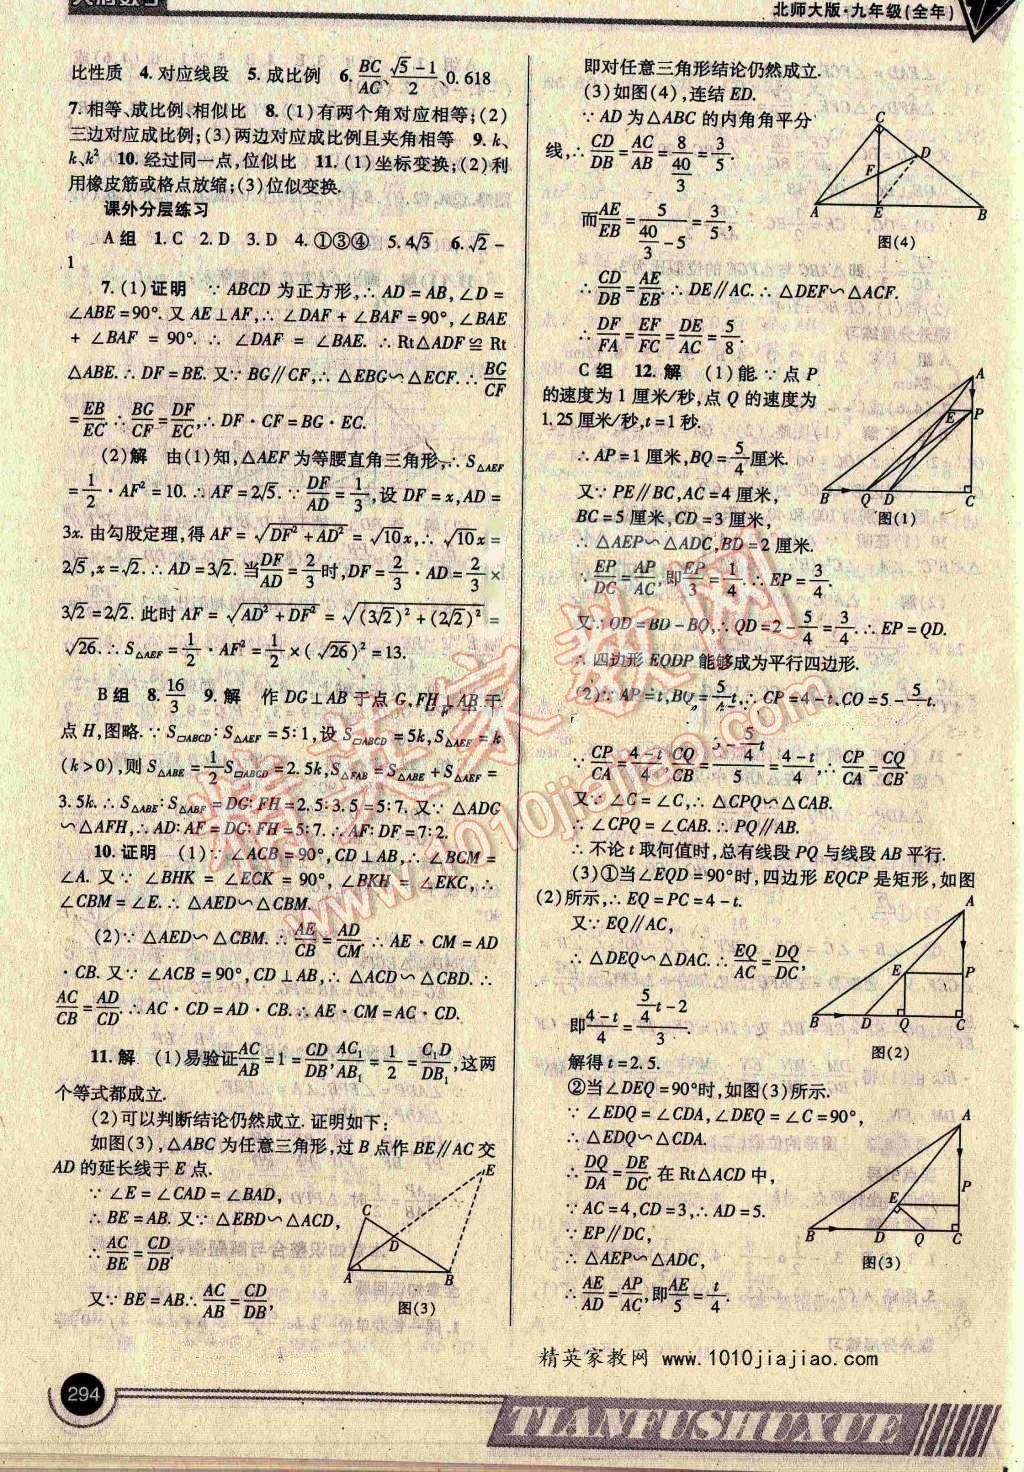 北师大版·九年级(全年)
比性质 4. 对应线段 5. 成比例 6. BC/AC、(√5-1)/2、0.618
7. 相等、成比例、相似比 8. (1)有两个角对应相等;(2)
三边对应成比例;(3)两边对应成比例且夹角相等 9. k、
k、k² 10. 经过同一点,位似比 11. (1)坐标变换;(2)利
用橡皮筋或格点放缩;(3)位似变换.
课外分层练习
A 组 1. C 2. D 3. D 4. ①③④ 5. 4√3 6. √2 -
1
7. (1)证明 ∵ ABCD 为正方形,∴ AD = AB,∠D =
∠ABE = 90°. 又 AE⊥AF,∴ ∠DAF + ∠BAF = 90°,∠BAE
+ ∠BAF = 90°. ∴ ∠DAF = ∠BAE. ∴ Rt△ADF ≌ Rt
△ABE. ∴ DF = BE. 又∵ BG∥CF,∴ △EBG∽△ECF. ∴ BG/CF
= EB/EC. ∴ BG/CF = DF/EC,∴ DF · CF = BG · EC.
(2)解 由(1)知,△AEF 为等腰直角三角形,∴ S△AEF
= 1/2 · AF² = 10. ∴ AF = 2√5. ∵ DF/AD = 1/3,设 DF = x,AD =
3x. 由勾股定理,得 AF = √(DF² + AD²) = √10x,∴ √10x =
2√5,x = √2. ∴ AD = 3√2. 当 DF/AD = 2/3 时,DF = 2/3 · AD = 2/3 ×
3√2 = 2√2. 此时 AF = √(AD² + DF²) = √((3√2)² + (2√2)²) =
√26. ∴ S△AEF = 1/2 · AF² = 1/2 × (√26)² = 13.
B 组 8. 16/3 9. 解 作 DG⊥AB 于点 G,FH⊥AB 于
点 H,图略. ∵ S□ABCD : S△AEF = 5 : 1,设 S□ABCD = 5k,S△AEF = k
(k > 0),则 S△ABE = 1/2 S□ABCD = 2.5k,S△FAB = S△ABE + S△AEF =
3.5k. ∴ S△ABE : S△ABF = DG : FH = 2.5 : 3.5 = 5 : 7. 又∵ △ADG
∽△AFH,∴ AD : AF = DG : FH = 5 : 7. ∴ AF : DF = 7 : 2.
10. 证明 (1)∵ ∠ACB = 90°,CD⊥AB,∴ ∠BCM =
∠A. 又∵ ∠BHK = ∠ECK = 90°,∠BKH = ∠EKC,∴
∠CBM = ∠E. ∴ △AED∽△CBM.
(2)∵ △AED∽△CBM. ∴ AE/CB = AD/CM ∴ AE · CM = AD
· CB. 又∵ ∠ACB = 90°,CD⊥AB,∴ △ACD∽△CBD. ∴
AC/CB = AD/CD. ∴ AC · CD = AD · CB. ∴ AE · CM = AC · CD.
11. 解 (1)易验证 AC/AB = 1 = CD/DB, AC₁/AB = 1/2 = C₁D/DB₁,这两
个等式都成立.
(2)可以判断结论仍然成立. 证明如下:
如图(3),△ABC 为任意三角形,过 B 点作 BE∥AC 交
AD 的延长线于 E 点.
∵ ∠E = ∠CAD = ∠BAD,
∴ BE = AB. 又∵ △EBD∽△ACD,
∴ AC/BE = CD/DB.
又∵ BE = AB ∴ AC/AB = CD/DB,
A B C D E
图(3)
即对任意三角形结论仍然成立.
(3)如图(4),连结 ED.
∵ AD 为△ABC 的内角角平分
线,∴ CD/DB = AC/AB = 8/(40/3) = 3/5.
而 AE/EB = 5/(40/3 - 5) = 3/5,
∴ CD/DB = AE/EB. ∴ DE∥AC. ∴ △DEF∽△ACF.
∴ DF/FA = EF/FC = DE/AC = 5/8.
C D F A E B
图(4)
C 组 12. 解 (1)能. ∵ 点 P
的速度为 1 厘米/秒,点 Q 的速度为
1.25 厘米/秒,t = 1 秒.
∴ AP = 1 厘米,BQ = 5/4 厘米.
又∵ PE∥BC,AC = 4 厘米,
BC = 5 厘米,CD = 3 厘米,
∴ △AEP∽△ADC,BD = 2 厘米.
A E P B Q D C
图(1)
∵ EP/DC = AP/AC,即 EP/3 = 1/4. ∴ EP = 3/4.
又∵ QD = BD - BQ,∴ QD = 2 - 5/4 = 3/4. ∴ EP = QD.
∴ 四边形 EQDP 能够成为平行四边形.
(2)∵ AP = t,BQ = 5/4 t,∴ CP = 4 - t,CQ = 5 - 5/4 t.
∵ CP/CA = (4 - t)/4, CQ/CB = (5 - 5/4 t)/5 = (4 - t)/4,∴ CP/CA = CQ/CB.
又∵ ∠C = ∠C,∴ △CPQ∽△CAB.
∴ ∠CPQ = ∠CAB. ∴ PQ∥AB.
∴ 不论 t 取何值时,总有线段 PQ 与线段 AB 平行.
(3)①当∠EQD = 90°时,四边形 EQCP 是矩形,如图
(2)所示,∴ EQ = PC = 4 - t.
又∵ EQ∥AC,
∴ △DEQ∽△DAC. ∴ EQ/AC = DQ/DC,
即 (4 - t)/4 = (5/4 t - 2)/3.
解得 t = 2.5.
A E P B D Q C
图(2)
②当∠DEQ = 90°时,如图(3)所示.
∵ ∠EDQ = ∠CDA,∠DEQ = ∠C = 90°,
∴ △EDQ∽△CDA.
∴ DQ/DA = DE/DC. 在 Rt△ACD 中,
∵ AC = 4,CD = 3,∴ AD = 5.
∵ EP∥DC,
∴ △AEP∽△ADC,
∴ AE/AD = AP/AC,即 AE/5 = t/4.
A E P B D Q C
图(3)
精英家教网 www.1010jiajiao.com
294
TIANFUSHUXUE
精英家教网
www.1010jiajiao.com